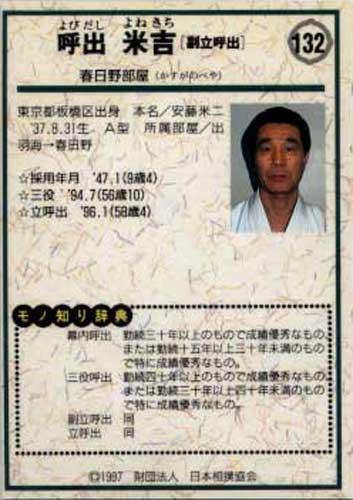 よびだし よねきち
呼出 米吉[副立呼出]
132
春日野部屋(かすがのべや)
東京都板橋区出身 本名/安藤米二
'37.8.31生 A型 所属部屋/出
羽海→春日野
☆採用年月 '47.1(9歳4)
☆三役 '94.7(56歳10)
☆立呼出 '96.1(58歳4)
モノ知り辞典
幕内呼出 勤続三十年以上のもので成績優秀なもの、
または勤続十五年以上三十年未満のもの
で特に成績優秀なもの。
三役呼出 勤続四十年以上のもので成績優秀なもの、
または勤続三十年以上四十年未満のもの
で特に成績優秀なもの。
副立呼出 同
立呼出 同
©1997 財団法人 日本相撲協会